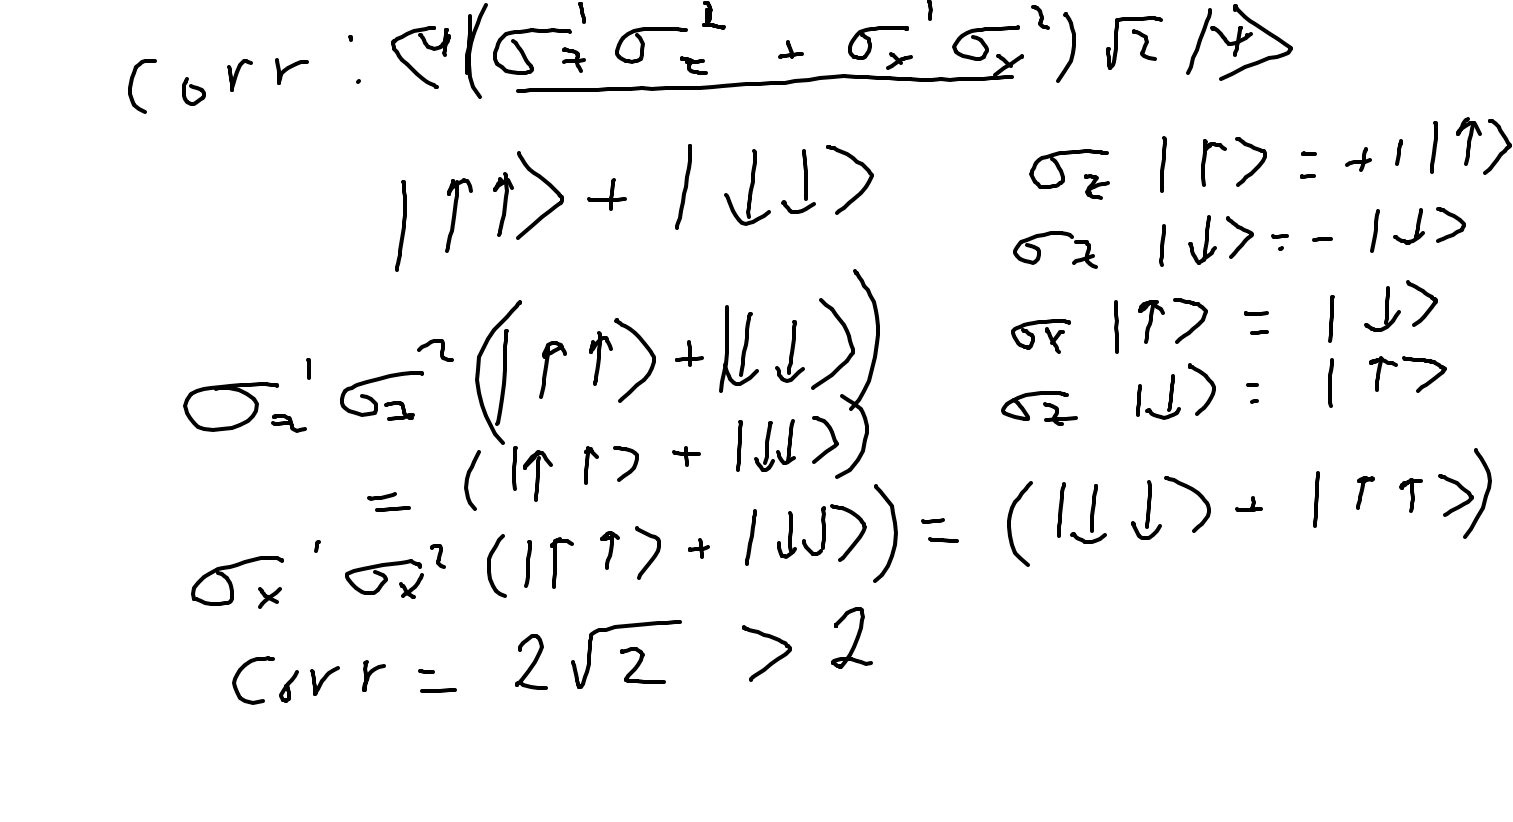 Corr : <ψ|(σz¹ σz² + σx¹ σx²) √2 |ψ>
|↑↑> + |↓↓>
σz |↑> = +1 |↑>
σz |↓> = - |↓>
σx |↑> = |↓>
σz |↓> = |↑>
σz¹ σz² (|↑↑> + |↓↓>)
= (|↑↑> + |↓↓>)
σx¹ σx² (|↑↑> + |↓↓>) = (|↓↓> + |↑↑>)
Corr = 2√2 > 2